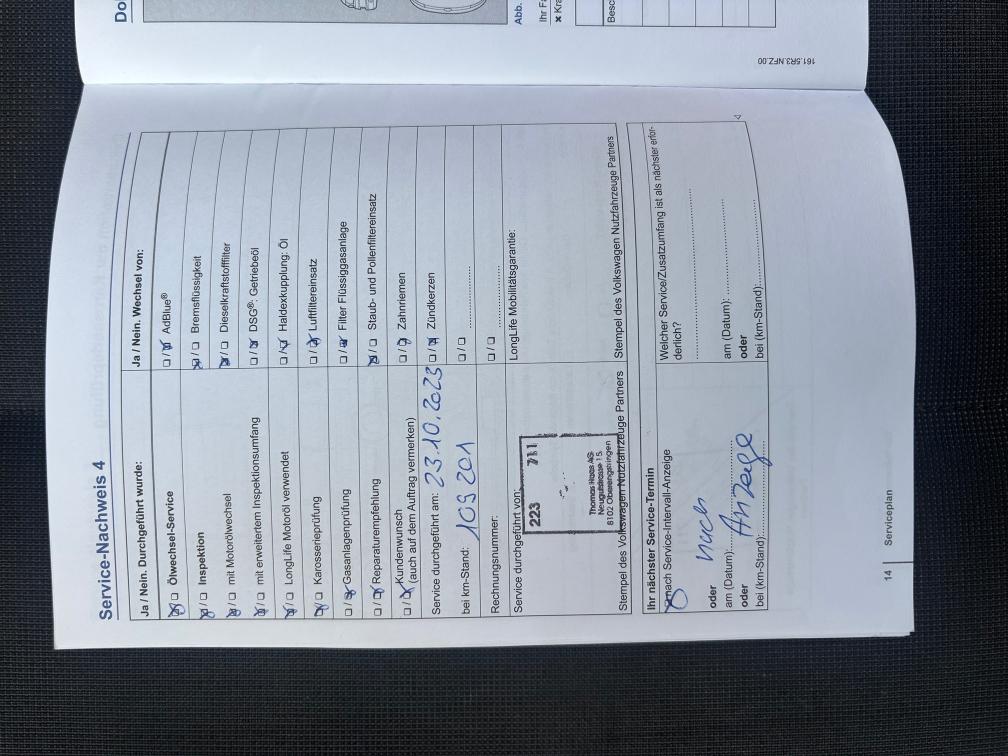 Do
Abb.
Ihr Fa
Kra
Besc
161.5R3.NFZ.00
Service-Nachweis 4
Ja / Nein. Durchgeführt wurde:
Ölwechsel-Service
Inspektion
mit Motorölwechsel
mit erweitertem Inspektionsumfang
LongLife Motoröl verwendet
Karosserieprüfung
Gasanlagenprüfung
Reparaturempfehlung
Kundenwunsch
(auch auf dem Auftrag vermerken)
Service durchgeführt am: 23.10.2023
bei km-Stand: 109 201
Rechnungsnummer:
Service durchgeführt von:
223 711
Thomas Haas AG
8102 Oberengstringen
Stempel des Volkswagen Nutzfahrzeuge Partners
Ja / Nein. Wechsel von:
AdBlue®
Bremsflüssigkeit
Dieselkraftstofffilter
DSG®: Getriebeöl
Haldexkupplung: Öl
Luftfiltereinsatz
Filter Flüssiggasanlage
Staub- und Pollenfiltereinsatz
Zahnriemen
Zündkerzen
LongLife Mobilitätsgarantie:
Stempel des Volkswagen Nutzfahrzeuge Partners
Ihr nächster Service-Termin
nach Service-Intervall-Anzeige
oder nach
am (Datum): Anzeige
oder
bei (km-Stand):
Welcher Service/Zusatzumfang ist als nächster erfor-
derlich?
am (Datum):
oder
bei (km-Stand):
14 Serviceplan